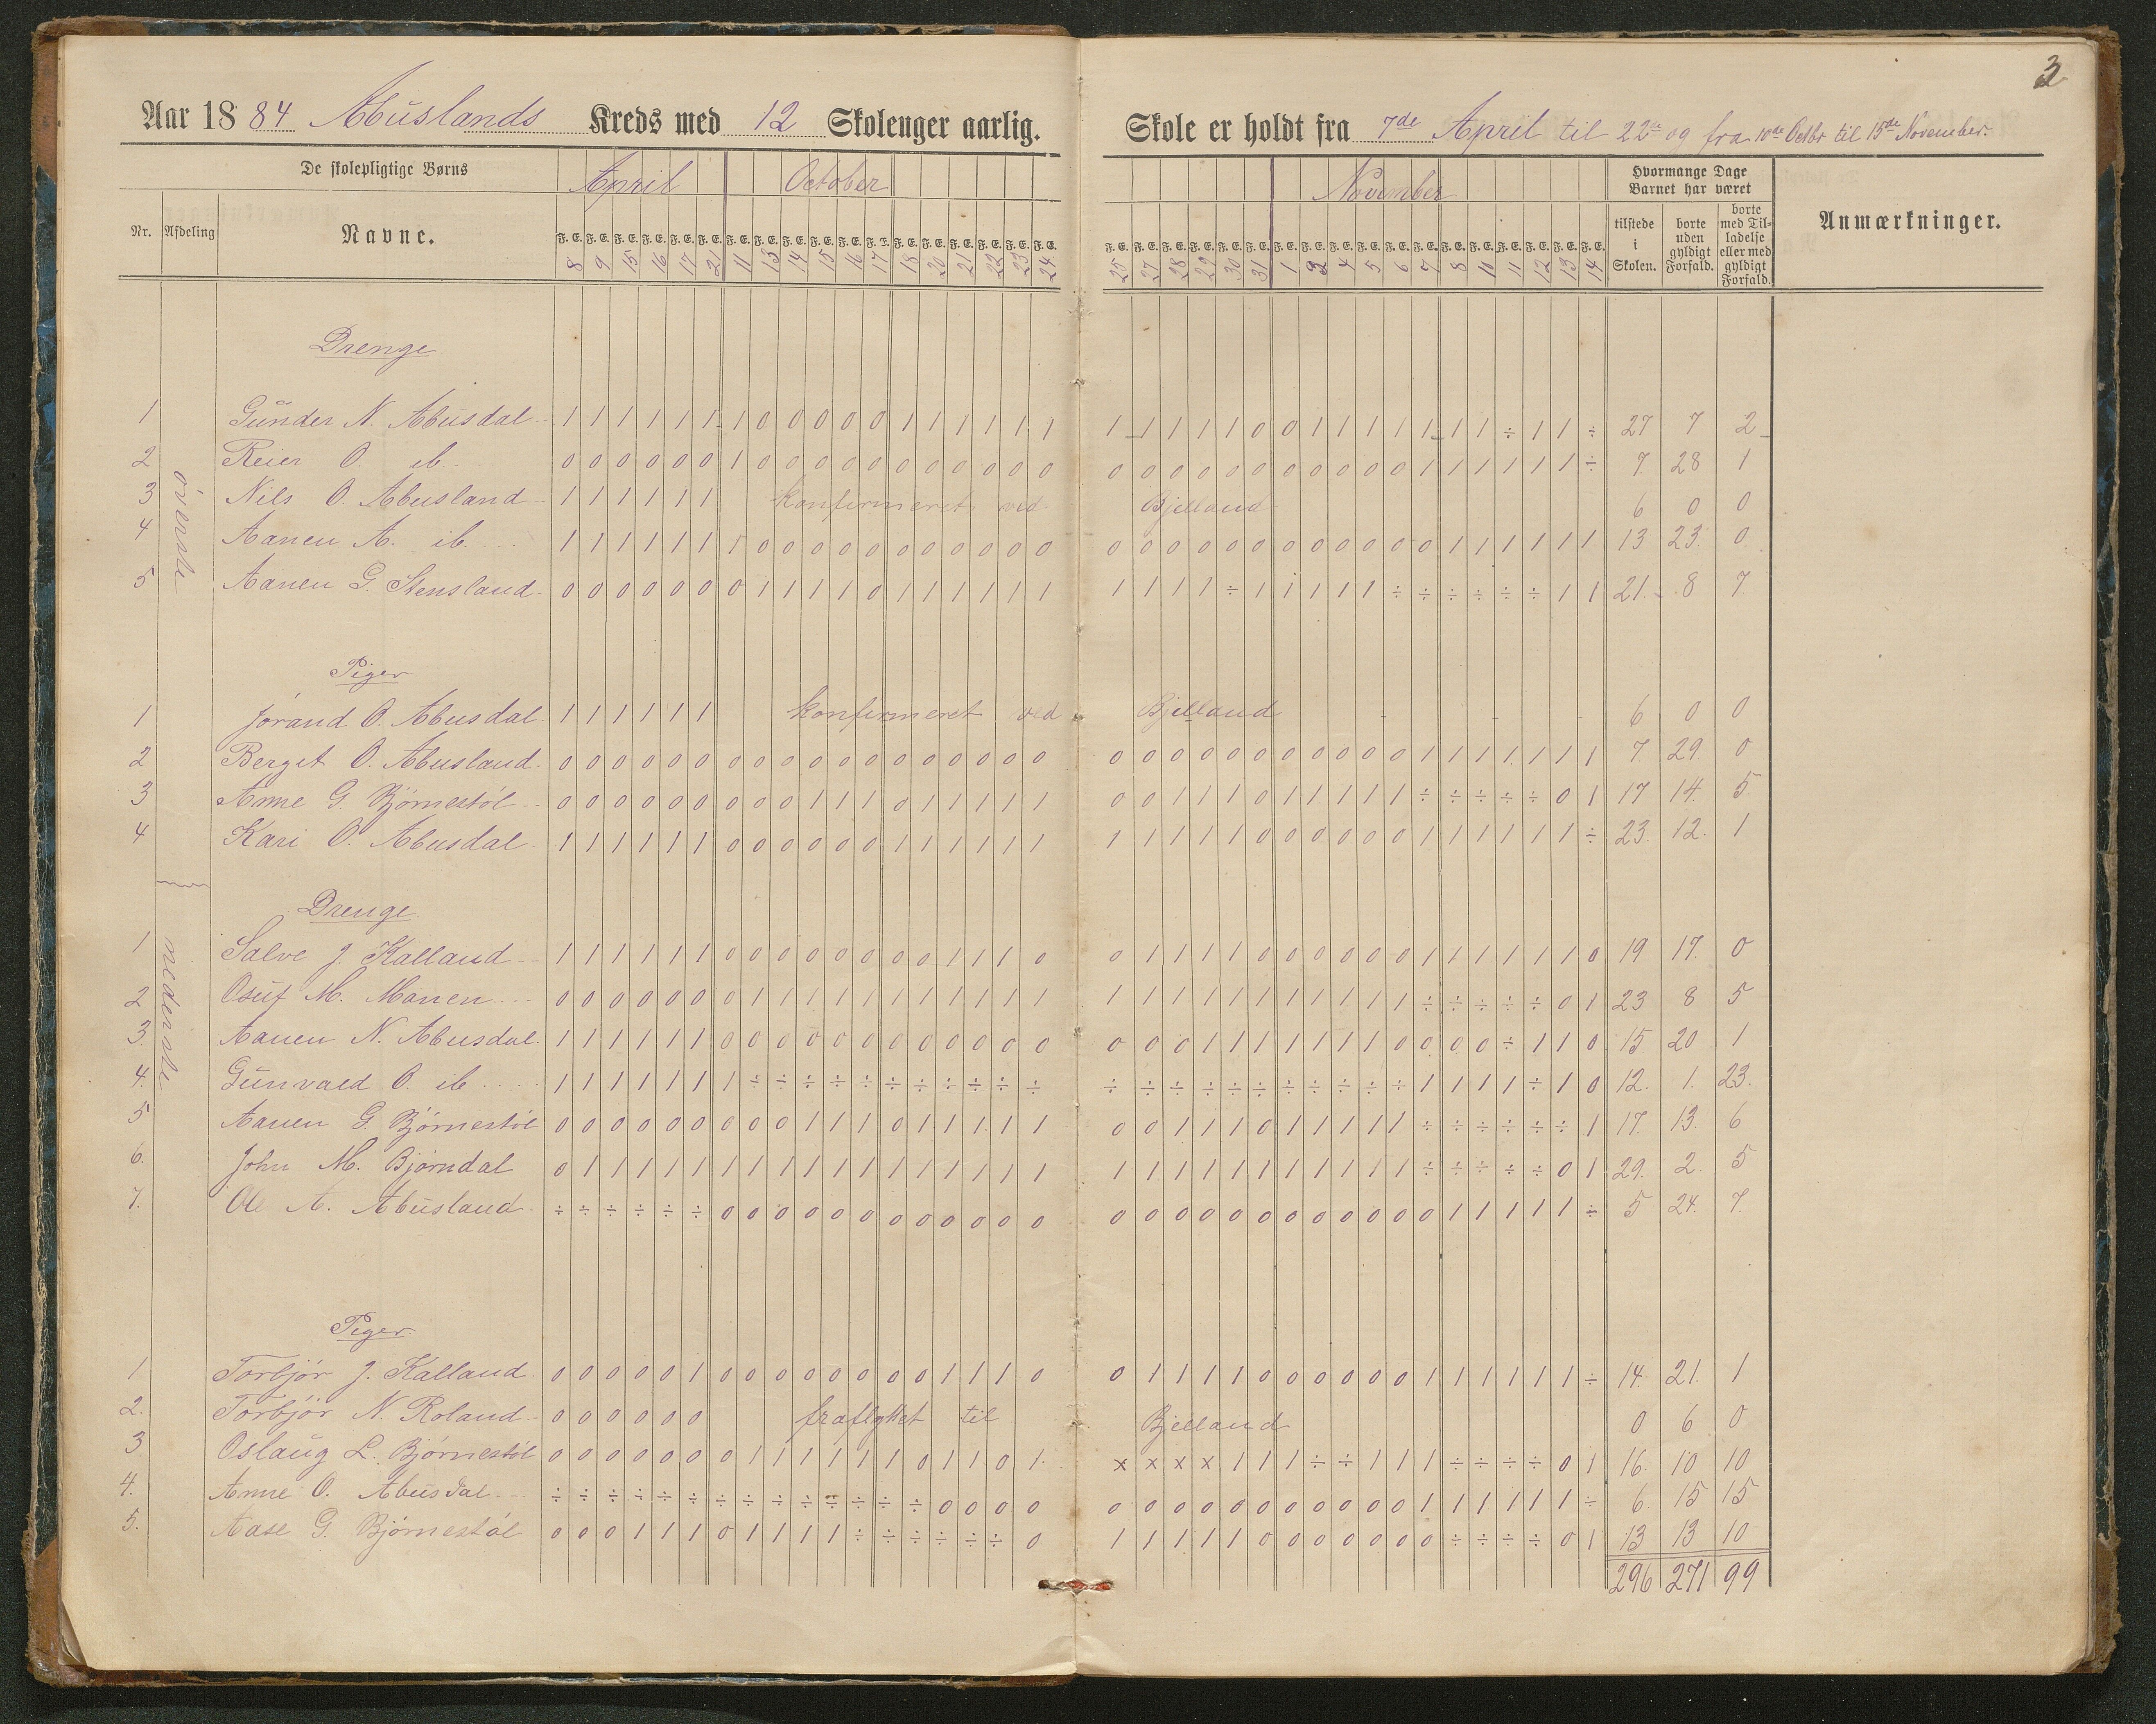 3
Aar 1884 Abuslands Kreds med 12 Skoleuger aarlig. Skole er holdt fra 7de April til 22de og fra 10de Octbr til 15de November.
De skolepligtige Børns April October November Hvormange Dage Barnet har været
Nr. Afdeling Navne. tilstede i Skolen. borte uden gyldigt Forfald. borte med Tilladelse eller med gyldigt Forfald. Anmærkninger.
F. E. F. E. F. E. F. E. F. E. F. E. F. E. F. E. F. E. F. E. F. E. F. E. F. E. F. E. F. E. F. E. F. E. F. E. F. E. F. E. F. E. F. E. F. E. F. E. F. E. F. E. F. E. F. E. F. E. F. E. F. E. F. E. F. E. F. E. F. E. F. E.
8 9 15 16 17 21 11 13 14 15 16 17 18 20 21 22 23 24 25 27 28 29 30 31 1 3 4 5 6 7 8 10 11 12 13 14
øverste
Drenge
1 Gunder N. Abusdal 1 1 1 1 1 1 1 0 0 0 0 0 1 1 1 1 1 1 1 1 1 1 1 0 0 1 1 1 1 1 1 1 ÷ 1 1 ÷ 27 7 2
2 Reier O. ib 0 0 0 0 0 0 1 0 0 0 0 0 0 0 0 0 0 0 0 0 0 0 0 0 0 0 0 0 0 1 1 1 1 1 1 ÷ 7 28 1
3 Nils O. Abusland 1 1 1 1 1 1 konfirmeret ved Bjelland 6 0 0
4 Aanen A. ib. 1 1 1 1 1 1 1 0 0 0 0 0 0 0 0 0 0 0 0 0 0 0 0 0 0 0 0 0 0 0 1 1 1 1 1 1 13 23 0
5 Aanen G. Stensland 0 0 0 0 0 0 0 1 1 1 1 0 1 1 1 1 1 1 1 1 1 1 ÷ 1 1 1 1 1 ÷ ÷ ÷ ÷ ÷ ÷ 1 1 21 8 7
Piger
1 Jørand O. Abusdal 1 1 1 1 1 1 konfirmeret ved Bjelland 6 0 0
2 Berget O. Abusland 0 0 0 0 0 0 0 0 0 0 0 0 0 0 0 0 0 0 0 0 0 0 0 0 0 0 0 0 0 1 1 1 1 1 1 1 7 29 0
3 Anne G. Bjørnestøl 0 0 0 0 0 0 0 0 0 1 1 1 0 1 1 1 1 1 0 0 1 1 1 0 1 1 1 1 1 ÷ ÷ ÷ ÷ ÷ 0 1 17 14 5
4 Kari O. Abusdal 1 1 1 1 1 1 0 0 0 0 0 0 1 1 1 1 1 1 1 1 1 1 1 0 0 0 0 0 0 1 1 1 1 1 1 ÷ 23 12 1
nederste
Drenge
1 Salve J. Kalland 1 1 1 1 1 1 0 0 0 0 0 0 0 0 1 1 1 0 0 1 1 1 1 0 0 0 0 0 0 1 1 1 1 1 1 0 19 17 0
2 Osuf M. Manen 0 0 0 0 0 0 0 1 1 1 1 1 1 1 1 1 1 1 1 1 1 1 1 1 1 1 1 1 1 ÷ ÷ ÷ ÷ ÷ 0 1 23 8 5
3. Aanen N. Abusdal 1 1 1 1 1 1 0 0 0 0 0 0 0 0 0 0 0 0 0 0 0 1 1 1 1 1 1 1 0 0 0 0 ÷ 1 1 0 15 20 1
4. Gunvald O. ib 1 1 1 1 1 1 1 ÷ ÷ ÷ ÷ ÷ ÷ ÷ ÷ ÷ ÷ ÷ ÷ ÷ ÷ ÷ ÷ ÷ ÷ ÷ ÷ ÷ ÷ 1 1 1 1 ÷ 1 0 12. 1. 23.
5 Aanen G. Bjørnestøl 0 0 0 0 0 0 0 0 0 1 1 1 0 1 1 1 1 1 0 0 1 1 1 0 1 1 1 1 1 ÷ ÷ ÷ ÷ ÷ ÷ 1 17. 13. 6
6. John M. Bjørndal 0 1 1 1 1 1 1 1 1 1 1 1 1 1 1 1 1 1 1 1 1 1 1 1 1 1 1 1 1 ÷ ÷ ÷ ÷ ÷ 0 1 29. 2 5
7. Ole A. Abusland ÷ ÷ ÷ ÷ ÷ ÷ 0 0 0 0 0 0 0 0 0 0 0 0 0 0 0 0 0 0 0 0 0 0 0 0 1 1 1 1 1 ÷ 5 24. 7.
Piger
1 Torbjør J. Kalland 0 0 0 0 0 1 0 0 0 0 0 0 0 0 1 1 1 0 0 1 1 1 1 0 0 0 0 0 0 1 1 1 1 1 1 ÷ 14. 21. 1
2. Torbjør N. Roland 0 0 0 0 0 0 fraflyttet til Bjelland 0 6 0
3 Oslaug L. Bjørnestøl 0 0 0 0 0 0 0 1 1 1 1 1 1 0 1 1 0 1 x x x x 1 1 1 ÷ ÷ 1 1 1 ÷ ÷ ÷ ÷ 0 1 16. 10 10
4. Anne O. Abusdal ÷ ÷ ÷ ÷ ÷ ÷ ÷ ÷ ÷ ÷ ÷ ÷ ÷ ÷ 0 0 0 0 0 0 0 0 0 0 0 0 0 0 0 1 1 1 1 1 1 ÷ 6. 15 15
5. Aase G. Bjørnestøl 0 0 0 1 1 1 0 1 1 1 1 ÷ ÷ ÷ ÷ ÷ ÷ 0 1 1 1 1 1 0 0 0 0 0 0 0 ÷ ÷ ÷ ÷ 0 1 13 13 10
296 271 99